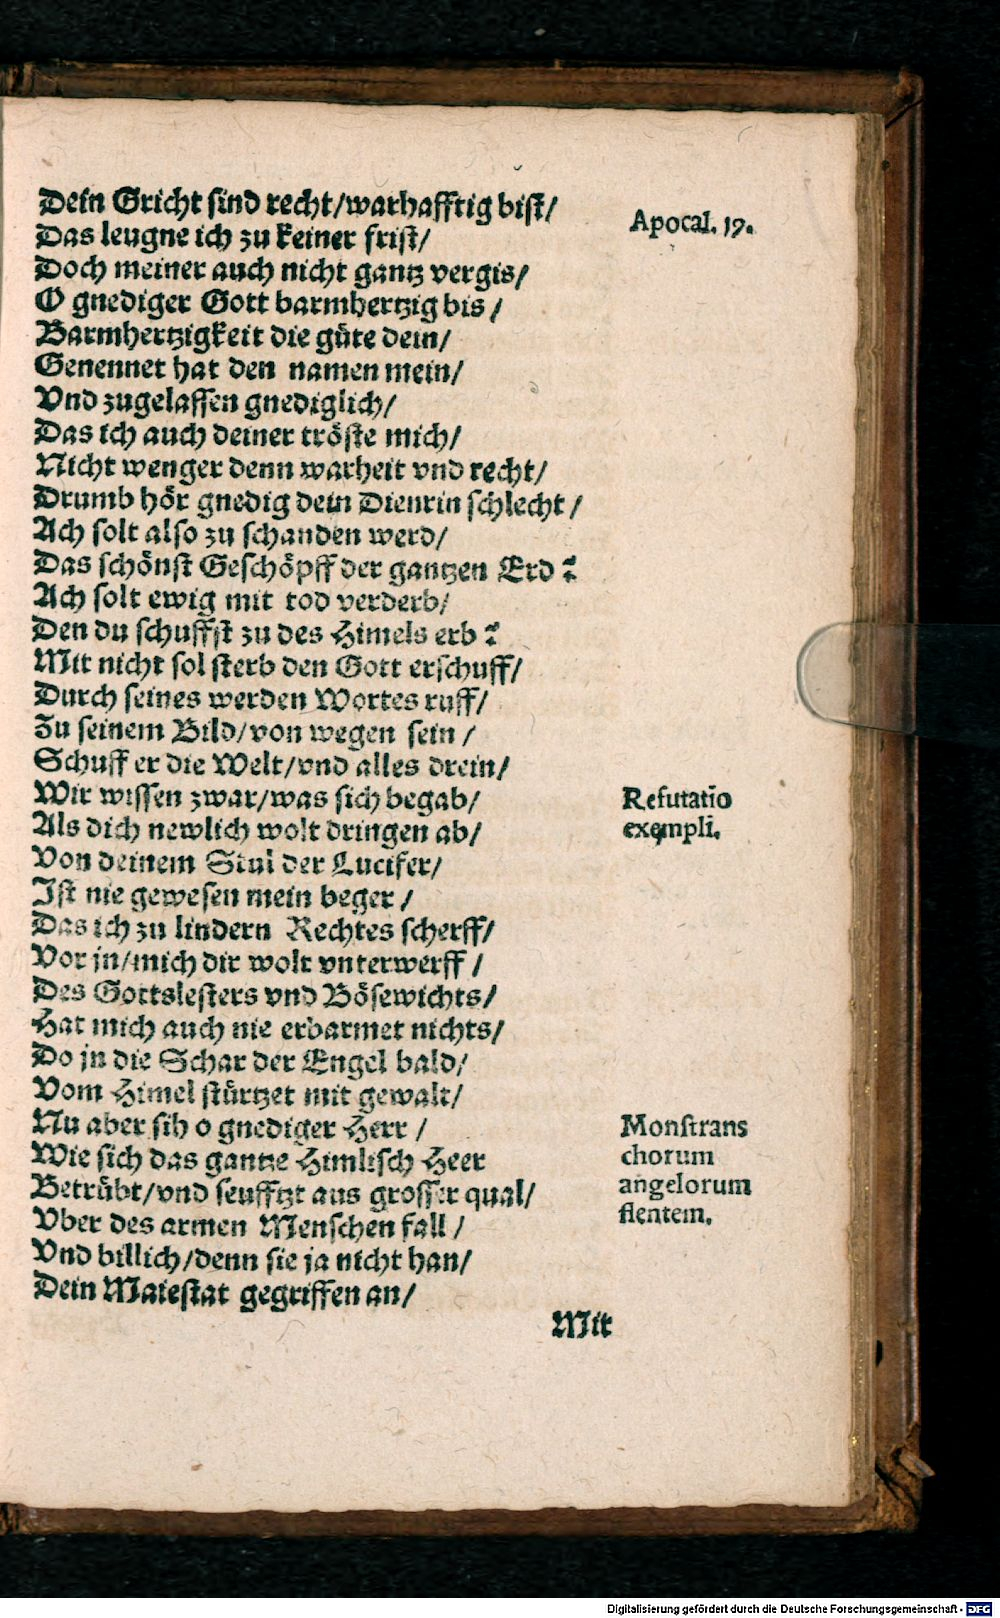 Dein Gricht sind recht/warhafftig bist/
Apocal. 19.
Das leugne ich zu keiner frist/
Doch meiner auch nicht gantz vergis/
O gnediger Gott barmhertzig bis/
Barmhertzigkeit die güte dein/
Genennet hat den namen mein/
Vnd zugelassen gnediglich/
Das ich auch deiner tröste mich/
Nicht wenger denn warheit vnd recht/
Drumb hör gnedig dein Dienrin schlecht/
Ach solt also zu schanden werd/
Das schönst Geschöpff der gantzen Erd?
Ach solt ewig mit tod verderb/
Den du schuffst zu des Himels erb?
Mit nicht sol sterb den Gott erschuff/
Durch seines werden Wortes ruff/
Zu seinem Bild/von wegen sein/
Schuff er die Welt/vnd alles drein/
Wir wissen zwar/was sich begab/
Refutatio
Als dich newlich wolt dringen ab/
exempli.
Von deinem Stul der Lucifer/
Ist nie gewesen mein beger/
Das ich zu lindern Rechtes scherff/
Vor jn/mich dir wolt vnterwerff/
Des Gottslesters vnd Bösewichts/
Hat mich auch nie erbarmet nichts/
Do jn die Schar der Engel bald/
Vom Himel stürtzet mit gewalt/
Nu aber sih o gnediger Herr/
Monstrans
Wie sich das gantze Himlisch Heer
chorum
Betrübt/vnd seufftzt aus grosser qual/
angelorum
Vber des armen Menschen fall/
flentem.
Vnd billich/denn sie ja nicht han/
Dein Maiestat gegriffen an/
Mit
Digitalisierung gefördert durch die Deutsche Forschungsgemeinschaft - DFG